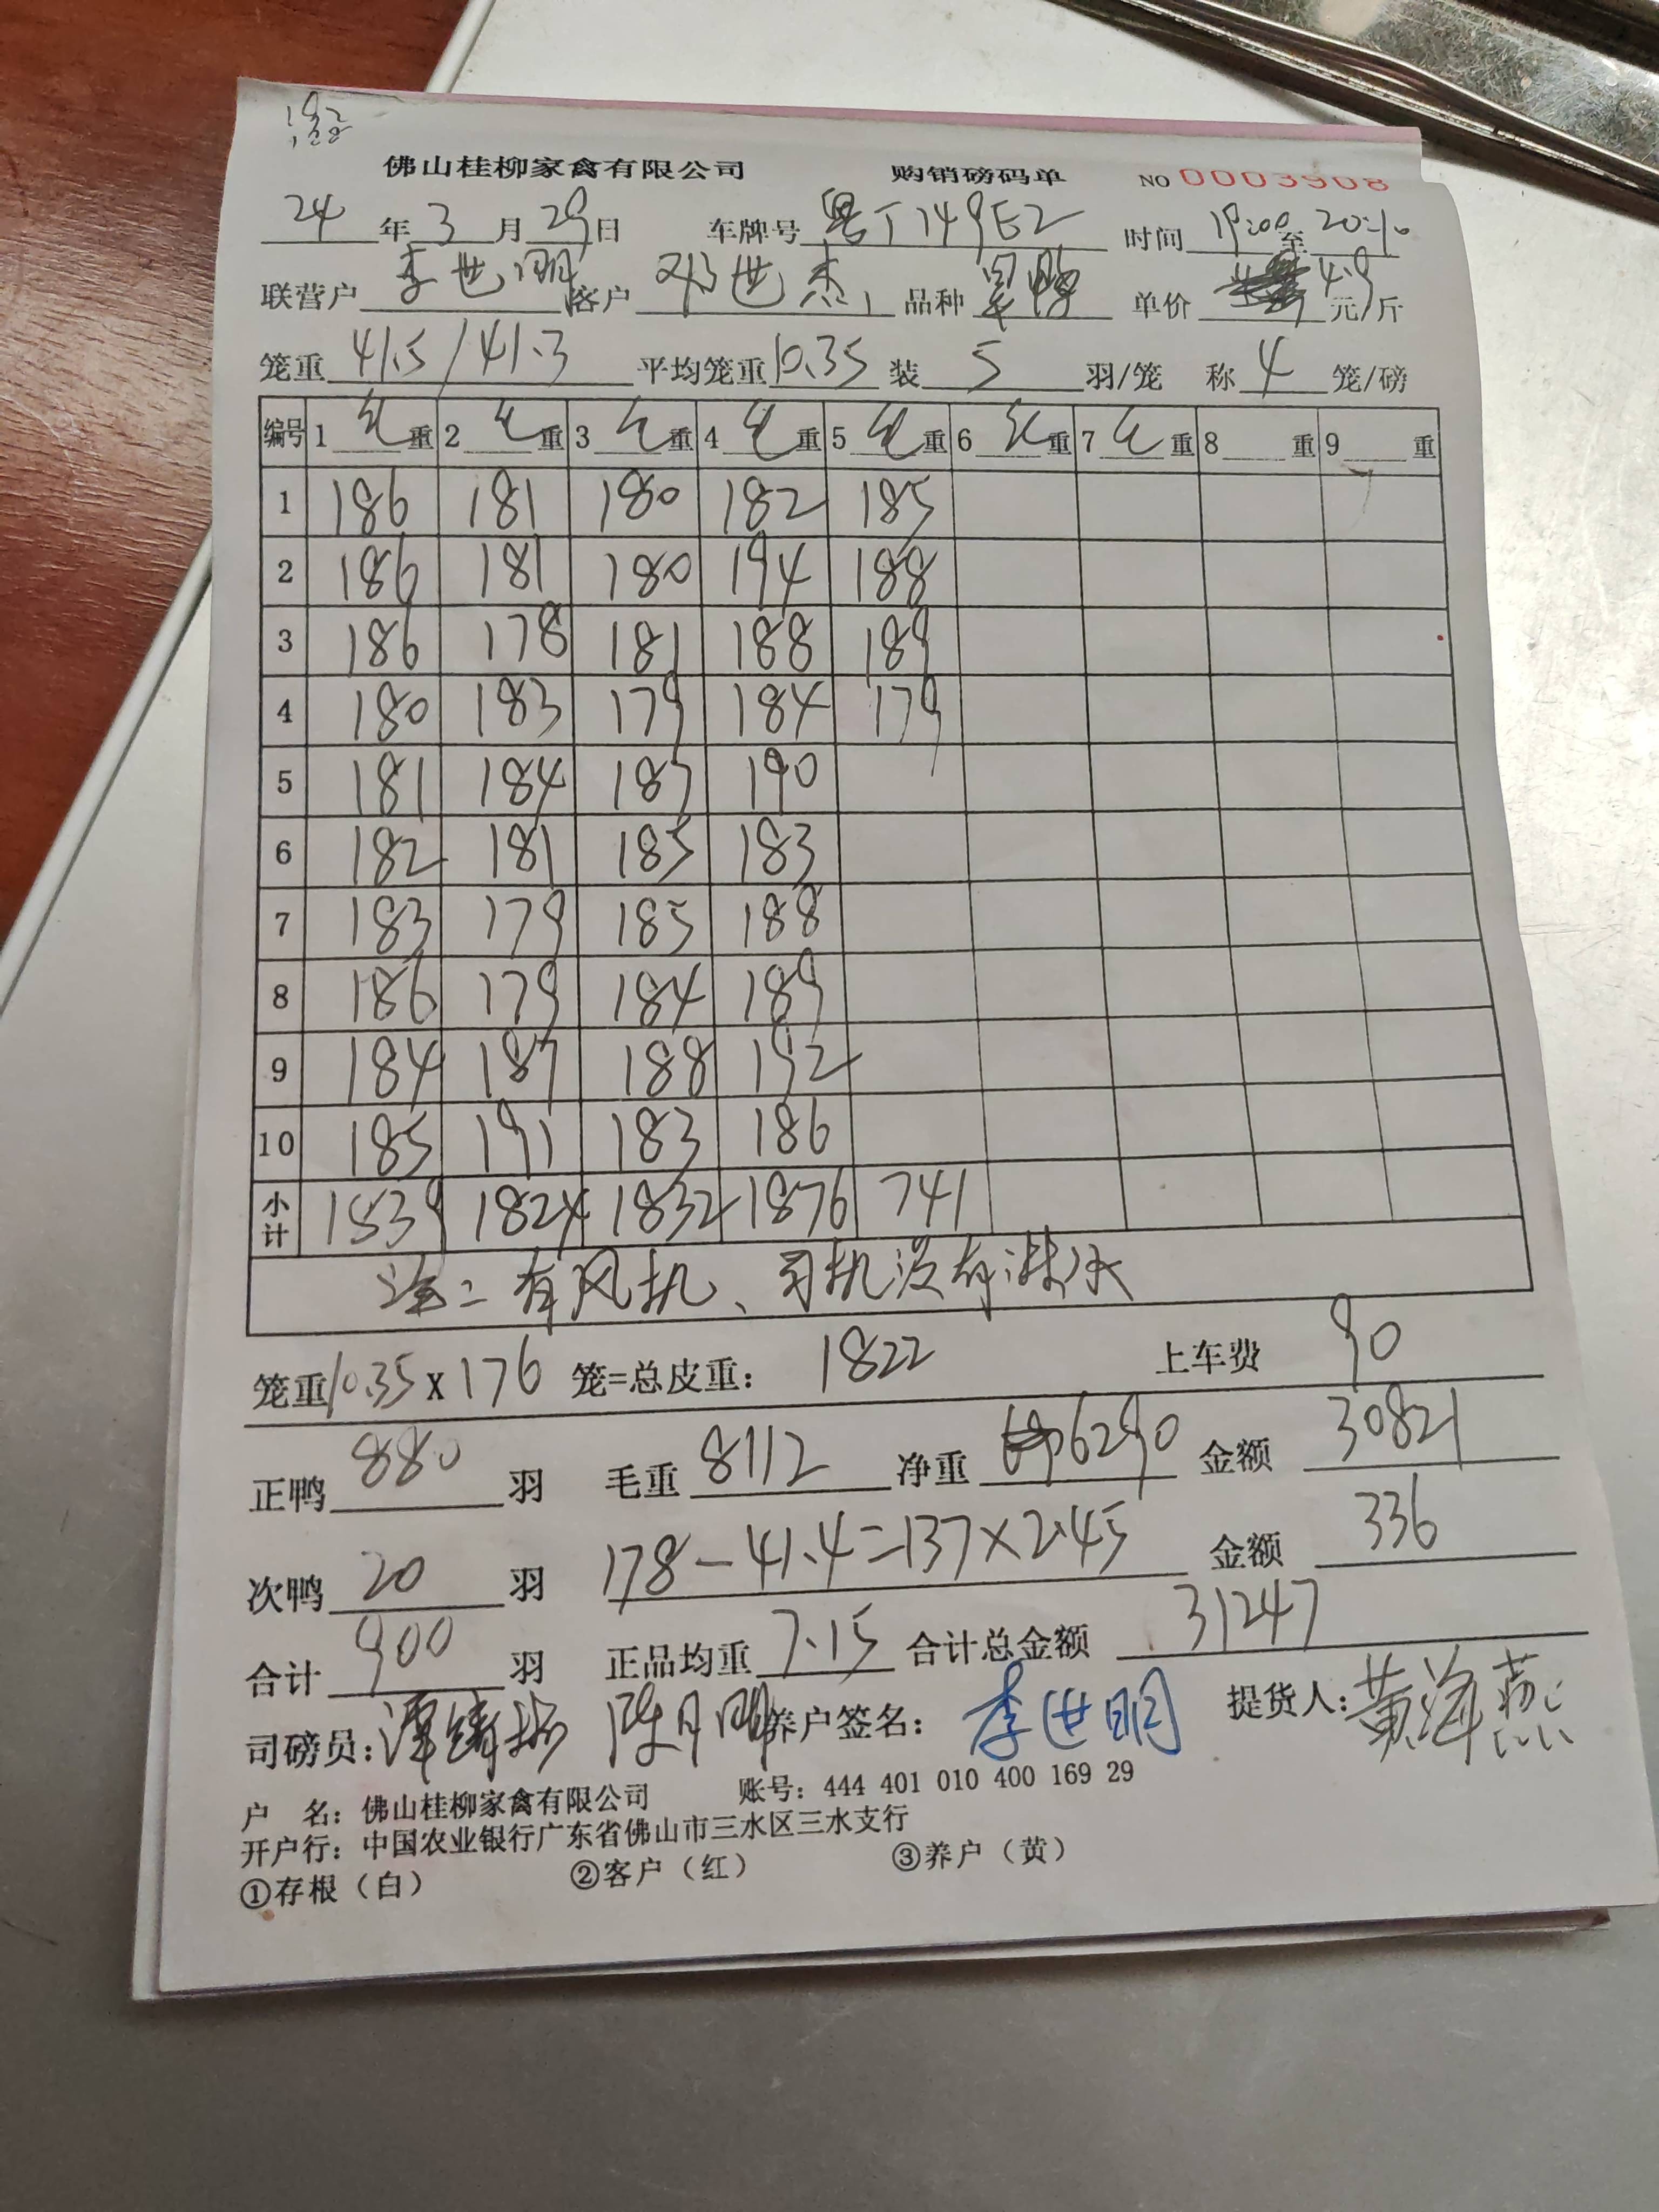 192
188
佛山桂柳家禽有限公司 购销磅码单 NO 0003908
24年3月29日 车牌号 粤T149E2 时间 19:00至20:10
联营户 李世明 客户 邓世杰 品种 单价 4.9 元/斤
笼重 41.5/41.3 平均笼重 10.35 装 5 羽/笼 称 4 笼/磅
编号 1毛重 2毛重 3毛重 4毛重 5毛重 6毛重 7毛重 8 重 9 重
1 186 181 180 182 185
2 186 181 180 194 188
3 186 178 181 188 189
4 180 183 179 184 179
5 181 184 187 190
6 182 181 185 183
7 183 179 185 188
8 186 179 184 189
9 184 187 188 192
10 185 191 183 186
小计 1839 1824 1832 1876 741
注:有风机、司机没有淋水
笼重10.35X176 笼=总皮重: 1822 上车费 90
正鸭 880 羽 毛重 8112 净重 6290 金额 30821
次鸭 20 羽 178-41.4=137×2.45 金额 336
合计 900 羽 正品均重 7.15 合计总金额 31247
司磅员: 陈月明 养户签名: 李世明 提货人: 黄海燕
户 名: 佛山桂柳家禽有限公司 账号: 444 401 010 400 169 29
开户行: 中国农业银行广东省佛山市三水区三水支行
①存根（白） ②客户（红） ③养户（黄）